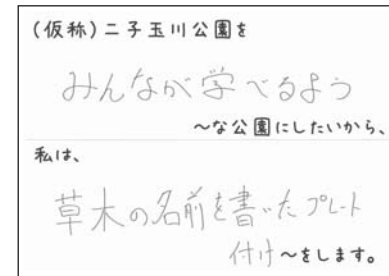 (仮称)二子玉川公園を
みんなが学べるよう
〜な公園にしたいから、
私は、
草木の名前を書いたプレート
付け〜をします。